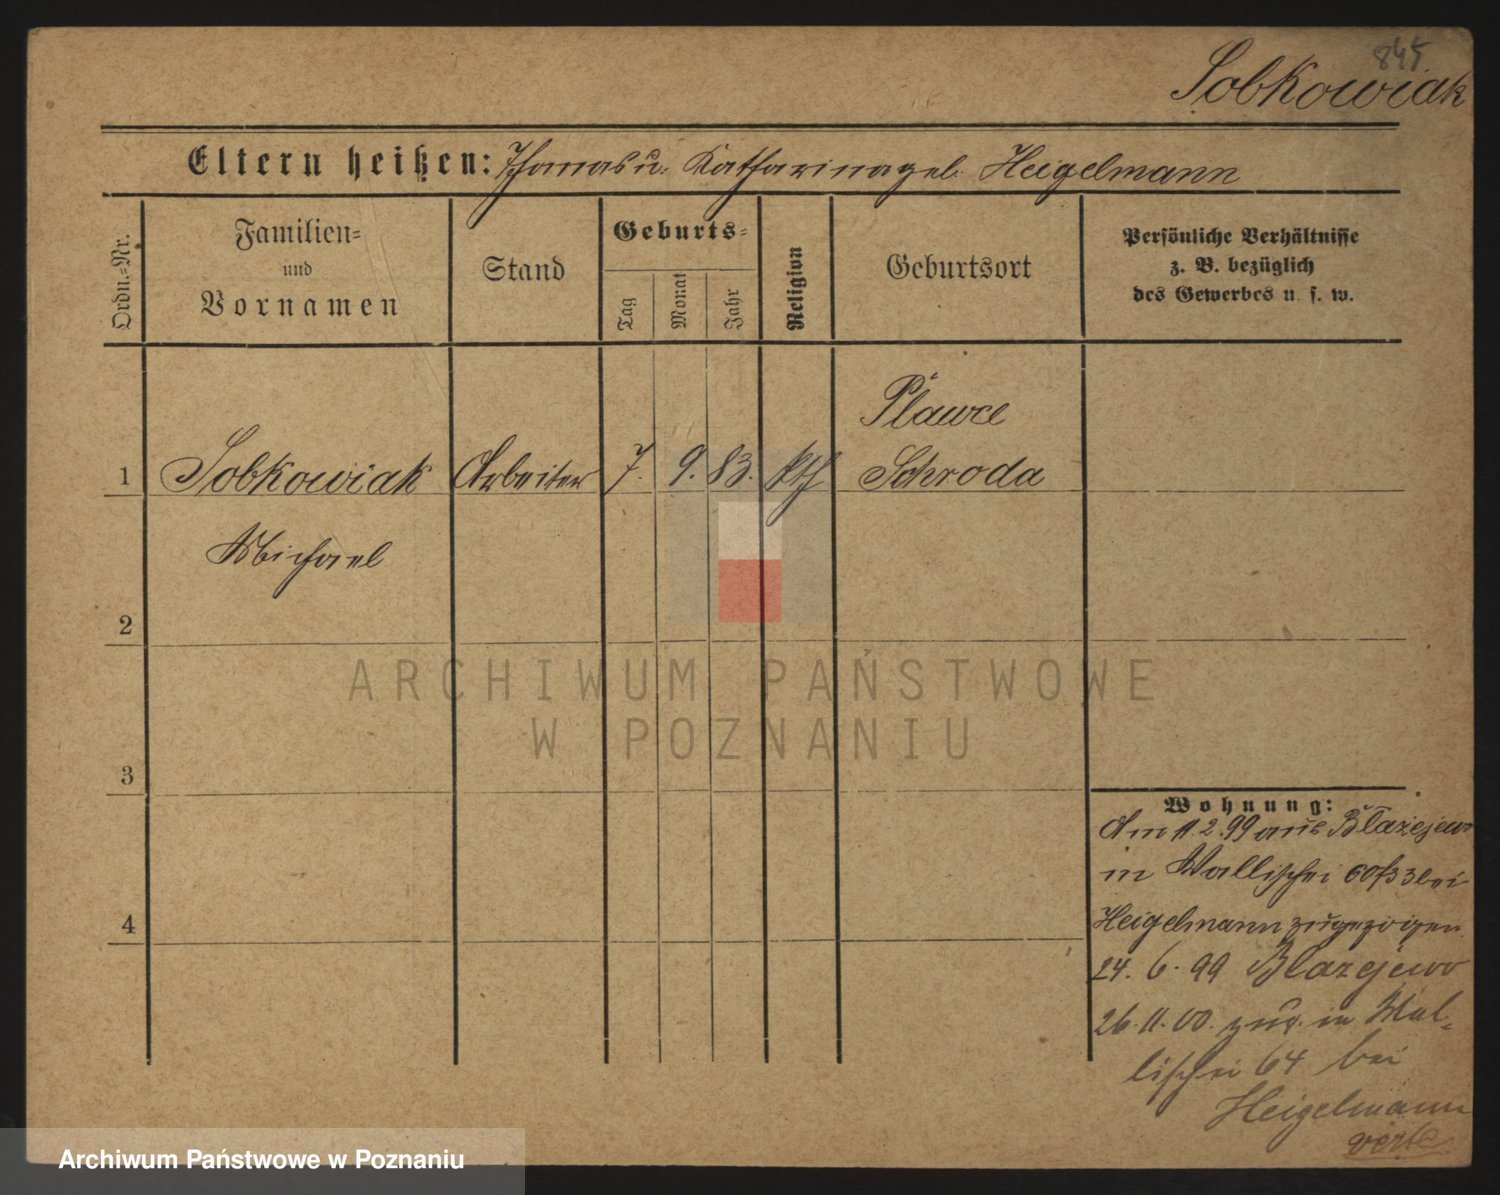 845
Sobkowiak
Eltern heißen: Thomas u. Katharina geb. Heigelmann
Ordn.=Nr.
Familien=
und
Vornamen
Stand
Geburts=
Tag
Monat
Jahr
Religion
Geburtsort
Persönliche Verhältnisse
z. B. bezüglich
des Gewerbes u. s. w.
Plawce
1 Sobkowiak Arbeiter 7. 9. 83. kth Schroda
Michael
2
ARCHIWUM PAŃSTWOWE
W POZNANIU
3
Wohnung:
Am 11.2.99 aus Błażejewo
in Wallischei 60/3 bei
4
Heigelmann zugezogen
24. 6. 99 Blazejewo
26. 11. 00. zug. in Wal-
lischei 64 bei
Heigelmann
verte
Archiwum Państwowe w Poznaniu